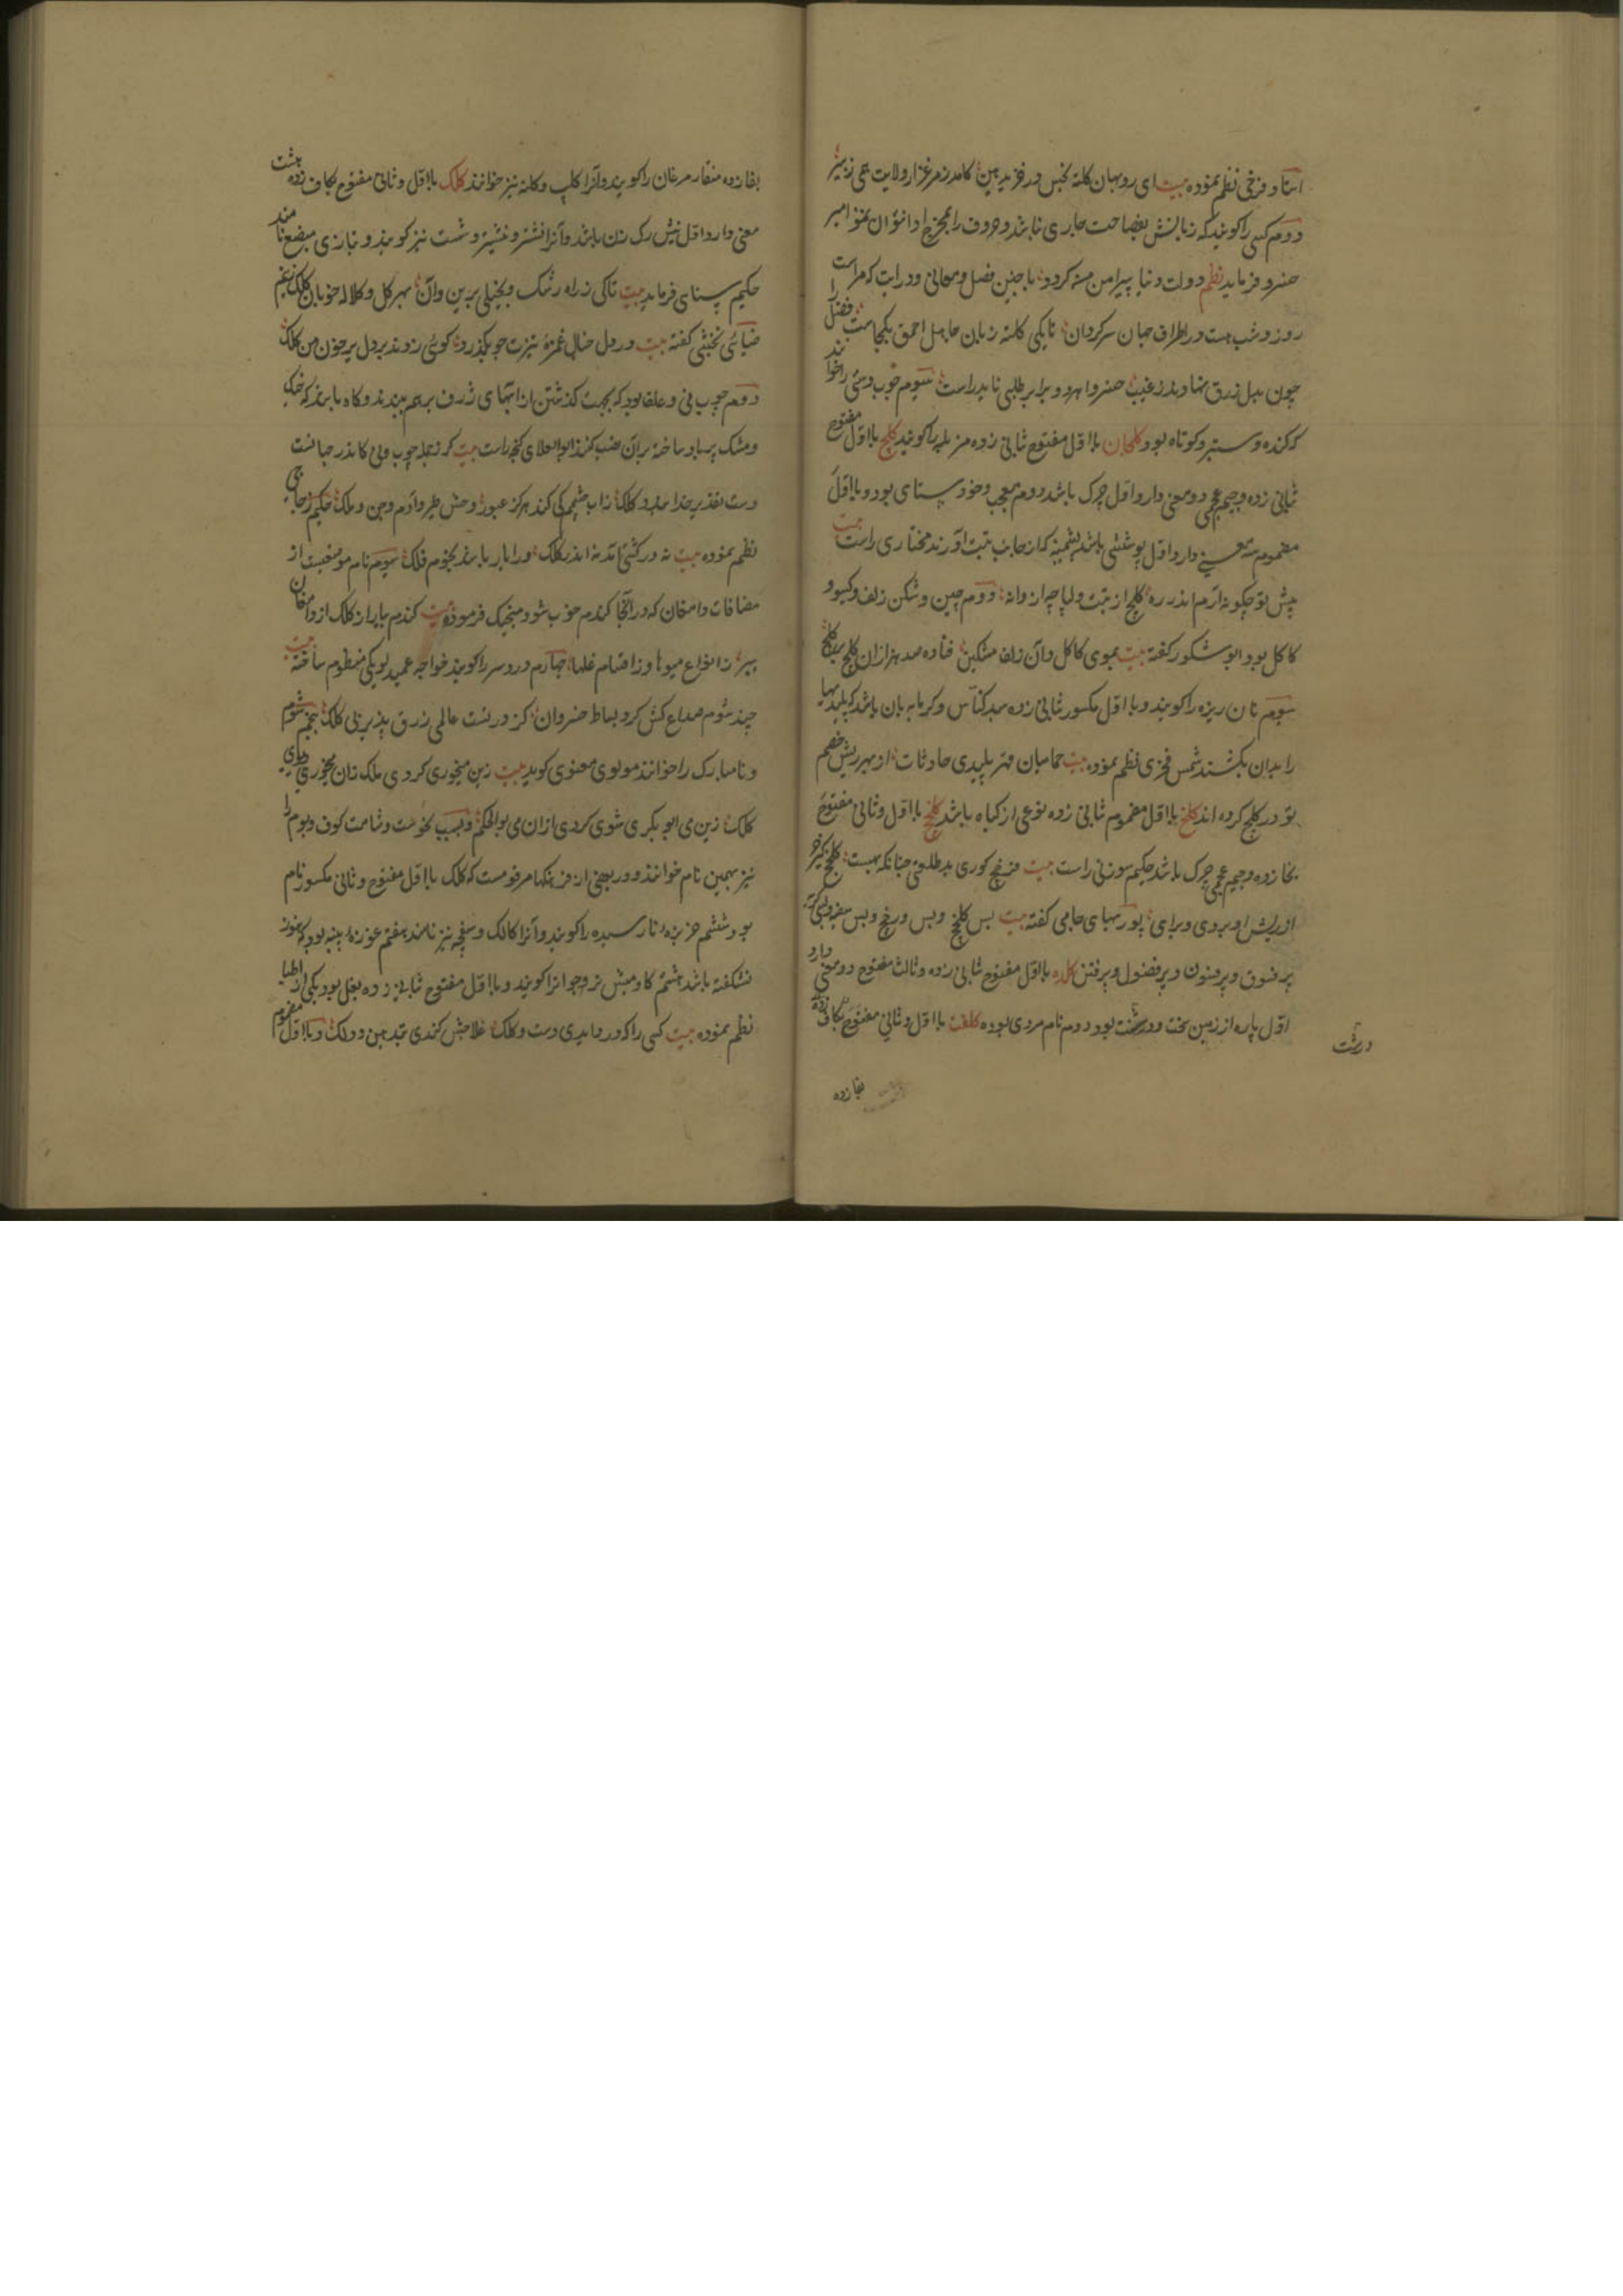 استاد فرخی نظم نموده بیت ای روبهان کلته بخس در خزید هین کامد ز مرغزار ولایت همی زئیر
دوم کسی را کویند که زبانش بفصاحت جاری نباشد و حروف را بمخرج ادا نتوان نمود امیر
خسرو فرماید نظم دولت دنیا پیرامن مه کردد با چنین فضل و معانی و درایت که مراست
روز و شب هست در اطراف جهان سرکردان تا یکی کلته زبان جاهل احمق بکجاست فضل را
چون بدل زرق نهادند ز غیب خسروا هر دو برابر طلبی ناید راست سیوم چوب دستی را خوانند
که کنده و ستبر و کوتاه بود کلجان با اول مفتوح ثانی زده مزبله را کویند کلج با اول مفتوح
ثانی زده و جیم عجمی دو معنی دارد اول چرک باشد دوم معجب و خود ستای بود و با اول
مضموم سه معنی دارد اول پوششی باشد پشمینه که از جانب تبت آورند مختاری راست بیت
پیش تو چکونه آرم اندر ره کلج از تبت و لباچه از وانه دوم چین و شکن زلف و کیسو و
کاکل بود ابو شکور کفته بیت بموی کاکل و آن زلف مشکین فتاده صد هزاران کلج بر کلج
سیوم نان ریزه را کویند و با اول مکسور ثانی زده سبد کناس و کرمابه بان باشد که پلیدیها
را بدان بکشند شمس فخری نظم نموده بیت حمامیان قهر پلیدی حادثات از بهر ریش خصم
تو در کلج کرده اند کلخ با اول مضموم ثانی زده نوعی از کیاه باشد کلخج با اول و ثانی مفتوح
بخا زده و جیم عجمی چرک باشد حکیم سوزنی راست بیت فرخج کوری بد طلعتی چنانکه بهست کلخج کیر خر
از ریش او بروی و برای پور بهای جامی کفته بیت بس کلخج و بس و رخج و بس
پر فسوق و پر فسون و پر فضول و پر فتن کلده با اول مفتوح ثانی زده و ثالث مفتوح دو معنی دارد
اول پاره از زمین سخت و درشت بود دوم نام مردی بوده کلفت با اول و ثانی مفتوح بکاف زده
درشت
بفا زده
بفا زده منقار مرغان را کویند و آنرا کلب و کلفه نیز خوانند کلک با اول و ثانی مفتوح بکاف زده هشت
معنی دارد اول نیش رک زن باشد و آنرا نشتر و نیشتر و شست نیز کویند و بتازی مبضع نامند
حکیم سنای فرماید بیت تا کی ز راه رشک و بخیلی برین و آن بهر کل و کلاله خوبان کلک زنیم
ضیائی نخشبی کفته بیت در دل خیال غمزهٔ تیزت چو بکذرد کوئی زدند بر دل پر خون من کلک
دوم چوب نی و علف بود که بجهت کذشتن از آبهای ژرف بر هم بندند و کاه باشد که خیک
و مشک پر باد ساخته بر آن نصب کنند ابو العلای کنجه راست بیت کر ز دجله چوب ولی کاندر جبلت
دست تقدیر خدا کلک ز آب چشم کی کند هرکز عبور وحش و طیر و آدم و جن و ملک حکیم
نظم نموده بیت نه در کشتی آمد نه اندر کلک ورا بار باشد نجوم فلک سیوم نام موضعیست از
مضافات دامغان که در آنجا کندم خوب شود منجیک فرموده بیت کندم بیار از کلک از دامغان
ببر ز انواع میوها و ز اقسام غلها چهارم درد سر را کویند خواجه عمید لویکی منظوم ساخته بیت
چند شوم صداع کش کرد بساط خسروان کز در تست عالمی رزق پذیر بی کلک پنجم شوم
و نامبارک را خوانند مولوی معنوی کوید بیت زین میخوری کردی ملک زان میخوری
کلک زین می ابو بکری شوی کردی ازان می بو الحکم و بسبب نحوست و شامت کوف و بوم را
نیز بهمین نام خوانند و در بعضی از فرهنکها مرقومست که کلک با اول مفتوح و ثانی مکسور نام
بود ششم خربزه نارسیده را کویند و آنرا کالک و سفچه نیز نامند هفتم غوزهٔ پنبه بود که هنوز
نشکفته باشد هشتم کاومیش نر جوانرا کویند و با اول مفتوح ثانی زده بغل بود یکی از اطبا
نظم نموده بیت کسی را که در ماندی دست و کلک علاجش کندی و با اول مضموم